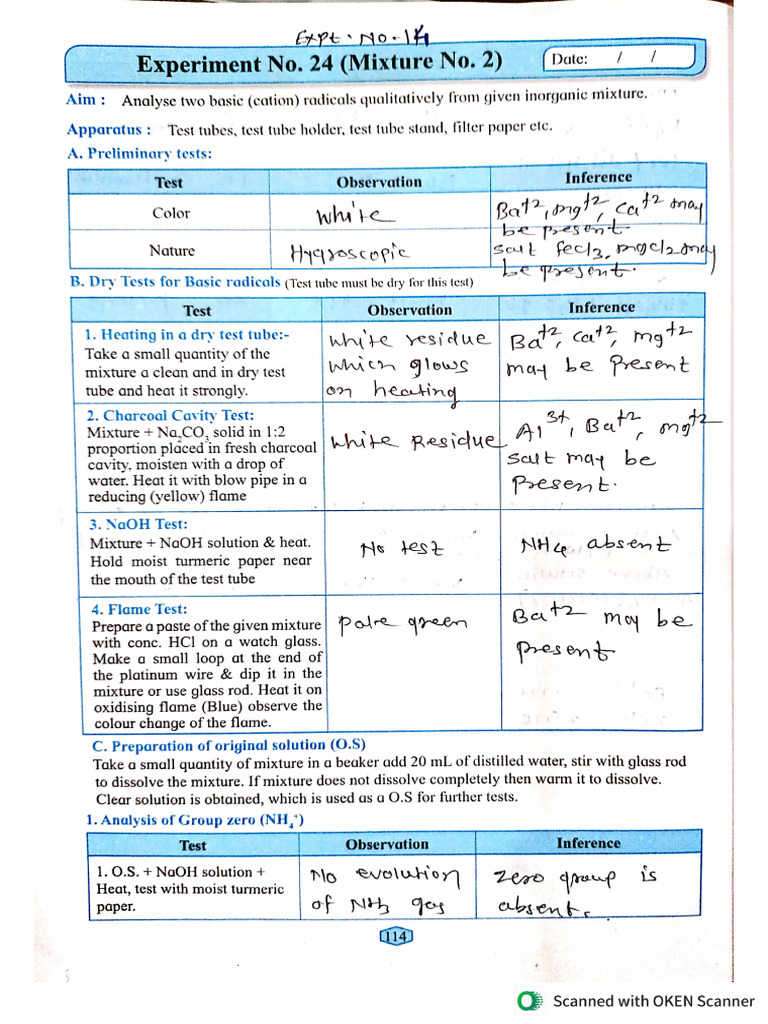 Expt. No. 14
Experiment No. 24 (Mixture No. 2)
Date: / /
Aim : Analyse two basic (cation) radicals qualitatively from given inorganic mixture.
Apparatus : Test tubes, test tube holder, test tube stand, filter paper etc.
A. Preliminary tests:
Test Observation Inference
Color White Ba+2, mg+2, ca+2 may
be present.
Nature Hygroscopic salt fecl3, mgcl2 may
be present.
B. Dry Tests for Basic radicals (Test tube must be dry for this test)
Test Observation Inference
1. Heating in a dry test tube:- White residue Ba+2, ca+2, mg+2
Take a small quantity of the which glows may be Present
mixture a clean and in dry test on heating
tube and heat it strongly.
2. Charcoal Cavity Test:
Mixture + Na2CO3 solid in 1:2 White Residue Al3+, Ba+2, mg+2
proportion placed in fresh charcoal salt may be
cavity, moisten with a drop of Present.
water. Heat it with blow pipe in a
reducing (yellow) flame
3. NaOH Test:
Mixture + NaOH solution & heat. No test NH4 absent
Hold moist turmeric paper near
the mouth of the test tube
4. Flame Test:
Prepare a paste of the given mixture pale green Ba+2 may be
with conc. HCl on a watch glass. present
Make a small loop at the end of
the platinum wire & dip it in the
mixture or use glass rod. Heat it on
oxidising flame (Blue) observe the
colour change of the flame.
C. Preparation of original solution (O.S)
Take a small quantity of mixture in a beaker add 20 mL of distilled water, stir with glass rod
to dissolve the mixture. If mixture does not dissolve completely then warm it to dissolve.
Clear solution is obtained, which is used as a O.S for further tests.
1. Analysis of Group zero (NH4+)
Test Observation Inference
1. O.S. + NaOH solution + No evolution zero group is
Heat, test with moist turmeric of NH3 gas absent.
paper.
114
Scanned with OKEN Scanner